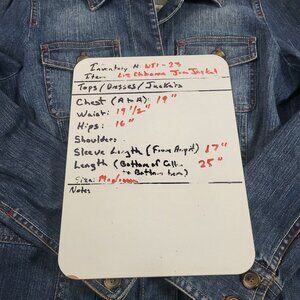 Inventory #: WJ1-23
Item Liz Claiborne Jean Jacket
Tops / Dresses / Jackets
Chest (A to A): 19"
Waist: 19 1/2"
Hips: 16"
Shoulders
Sleeve Length (From Armpit) 17"
Length (Bottom of Coller 25"
to Bottom hem)
Size: Medium
Notes